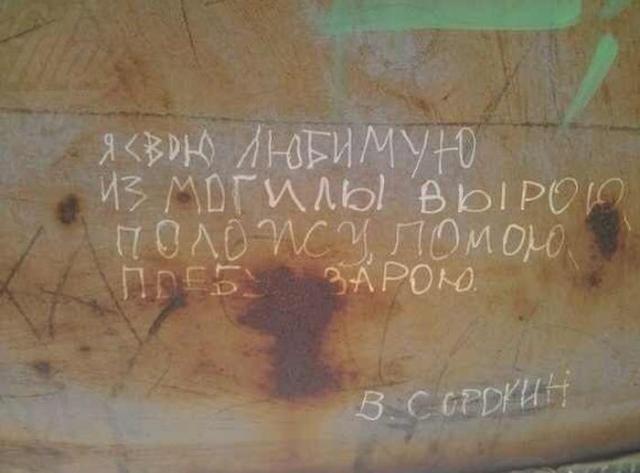 Я СВОЮ ЛЮБИМУЮ
ИЗ МОГИЛЫ ВЫРОЮ,
ПОЛОЖУ, ПОМОЮ,
ЗАРОЮ.
В СОРОКИН